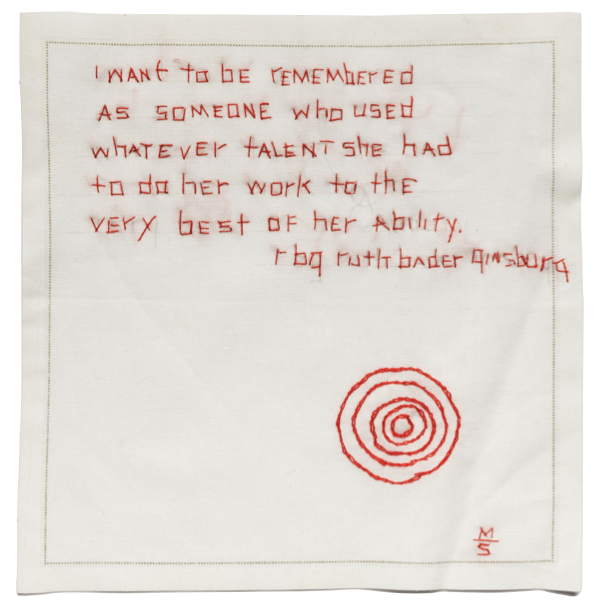 I WANt to bE rEMEMberEd
AS SOMEONE who uSEd
whATEVEr tALENT She hAd
to do her work to thE
VERY bESt OF her AbiliTy.
rbg ruth bAder ginsburg
M
S